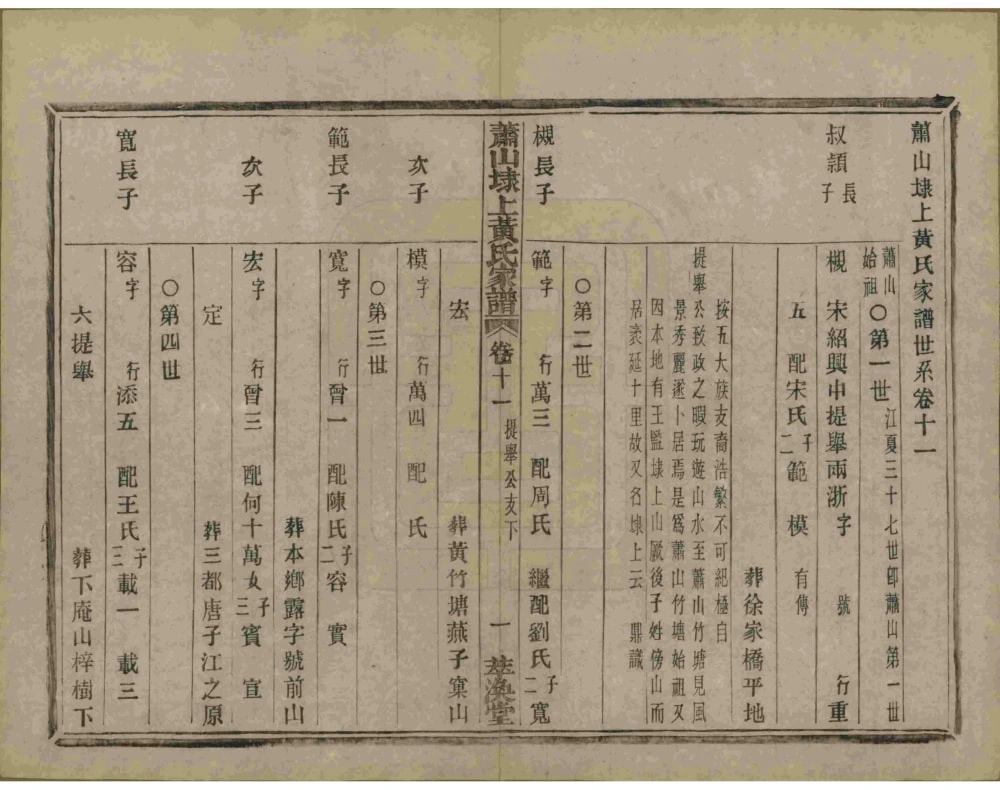 蕭山埭上黃氏家譜世系卷十一
蕭山始祖 〇第一世 江夏三十七世卽蕭山第一世
叔頴長子 槻 宋紹興中提舉兩浙 字 號 行重
五 配宋氏 子二 範 模 有傳
葬徐家橋平地
按五大族支裔浩繁不可紀極自
提舉公致政之暇玩遊山水至蕭山竹塘見風
景秀麗遂卜居焉是爲蕭山竹塘始祖又
因本地有王監埭上山厥後子姓傍山而
居袤延十里故又名埭上云 鼎識
〇第二世
槻長子 範 字 行萬三 配周氏 繼配劉氏 子二 寬
蕭山埭上黃氏家譜 卷十一 提舉公支下 一 萃渙堂
宏 葬黃竹塘燕子窠山
次子 模 字 行萬四 配 氏
〇第三世
範長子 寬 字 行曾一 配陳氏 子二 容 實
葬本鄉露字號前山
次子 宏 字 行曾三 配何十萬女 子三 賓 宣
定 葬三都唐子江之原
〇第四世
寬長子 容 字 行添五 配王氏 子三 載一 載三
六提舉 葬下庵山梓樹下